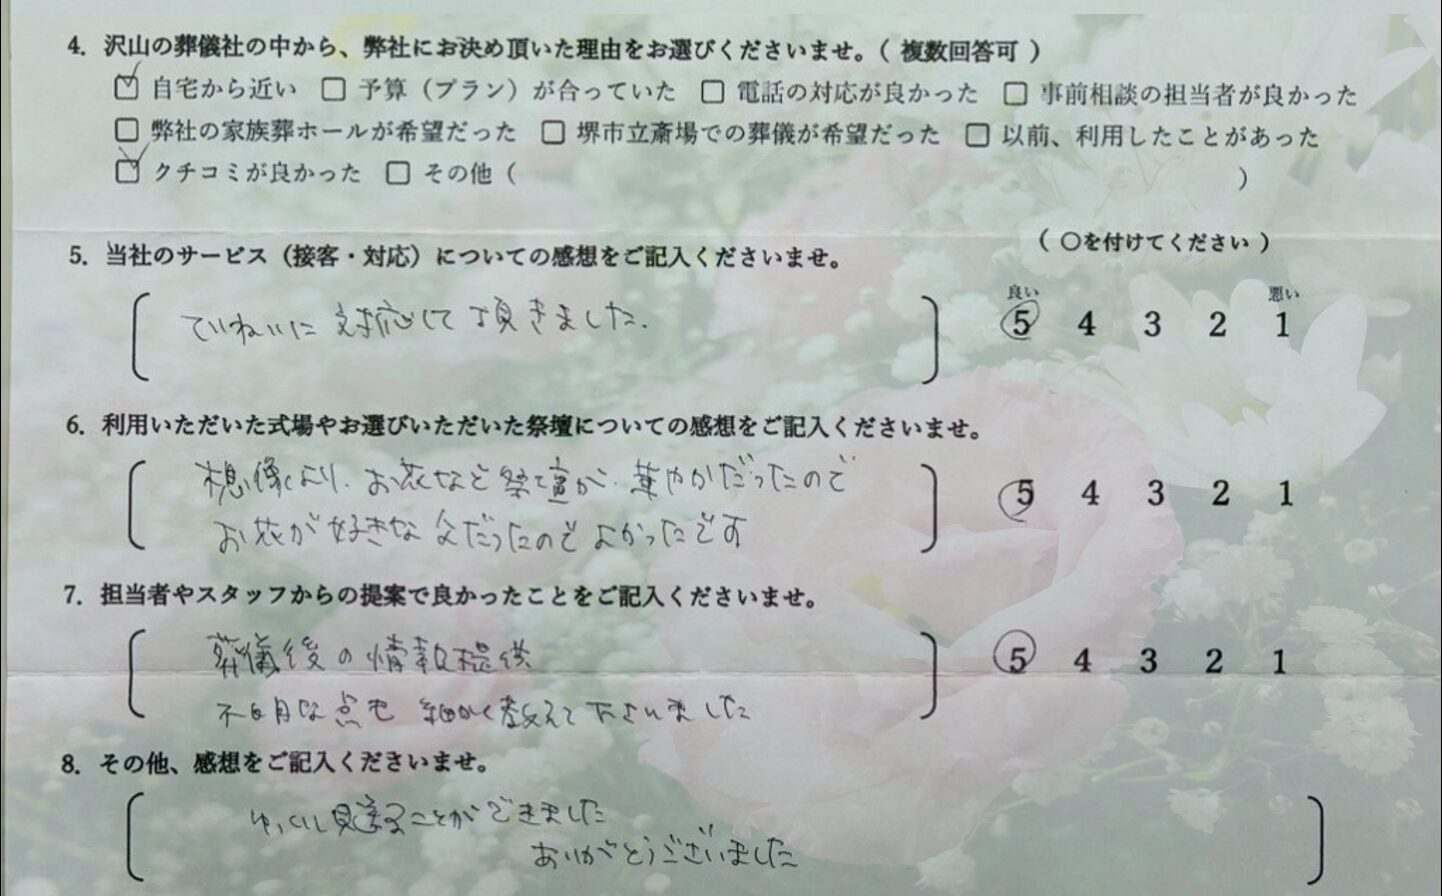 4. 沢山の葬儀社の中から、弊社にお決め頂いた理由をお選びくださいませ。（ 複数回答可 ）
☑ 自宅から近い □ 予算（プラン）が合っていた □ 電話の対応が良かった □ 事前相談の担当者が良かった
□ 弊社の家族葬ホールが希望だった □ 堺市立斎場での葬儀が希望だった □ 以前、利用したことがあった
☑ クチコミが良かった □ その他（ ）
5. 当社のサービス（接客・対応）についての感想をご記入くださいませ。 （ ○を付けてください ）
良い 悪い
ていねいに対応して頂きました. 5 4 3 2 1
6. 利用いただいた式場やお選びいただいた祭壇についての感想をご記入くださいませ。
想像より、お花など祭壇が、華やかだったので 5 4 3 2 1
お花が好きな父だったのでよかったです
7. 担当者やスタッフからの提案で良かったことをご記入くださいませ。
葬儀後の情報提供 5 4 3 2 1
不明な点も細かく教えて下さいました
8. その他、感想をご記入くださいませ。
ゆっくりし見送ることができました
ありがとうございました